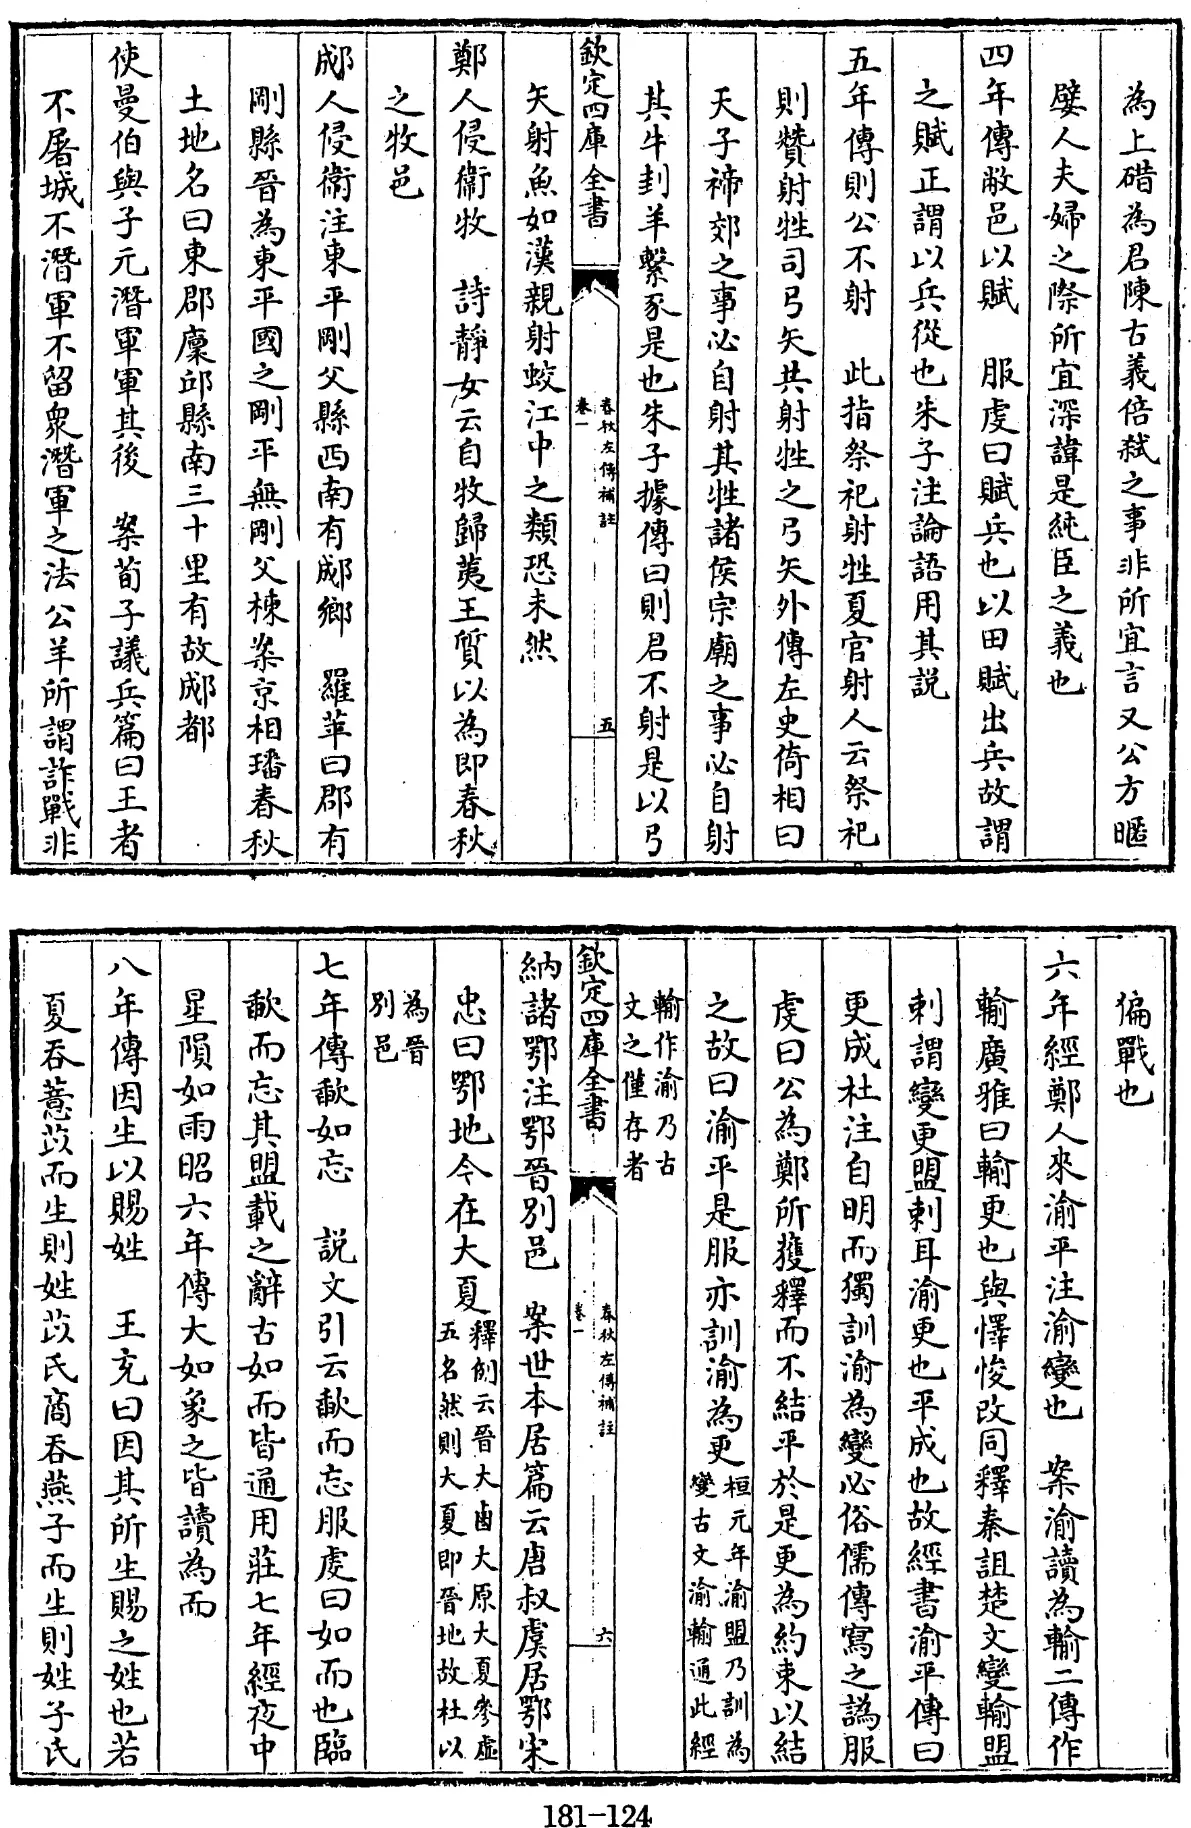 為上碏為君陳古義倍弑之事非所宜言又公方暱
嬖人夫婦之際所宜深諱是純臣之義也
四年傳敝邑以賦 服虔曰賦兵也以田賦出兵故謂
之賦正謂以兵從也朱子注論語用其説
五年傳則公不射 此指祭祀射牲夏官射人云祭祀
則贊射牲司弓矢共射牲之弓矢外傳左史倚相曰
天子禘郊之事必自射其牲諸侯宗廟之事必自射
其牛刲羊繫豕是也朱子據傳曰則君不射是以弓
欽定四庫全書
春秋左傳補註
卷一
五
矢射魚如漢親射蛟江中之類恐未然
鄭人侵衛牧 詩靜女云自牧歸荑王質以為即春秋
之牧邑
郕人侵衛注東平剛父縣西南有郕鄉 羅苹曰郡有
剛縣晉為東平國之剛平無剛父棟案京相璠春秋
土地名曰東郡廩邱縣南三十里有故郕都
使曼伯與子元潛軍軍其後 案荀子議兵篇曰王者
不屠城不潛軍不留衆潛軍之法公羊所謂詐戰非
偏戰也
六年經鄭人來渝平注渝變也 案渝讀為輸二傳作
輸廣雅曰輸更也與懌悛改同釋秦詛楚文變輸盟
刺謂變更盟刺耳渝更也平成也故經書渝平傳曰
更成杜注自明而獨訓渝為變必俗儒傳寫之譌服
虔曰公為鄭所獲釋而不結平於是更為約束以結
之故曰渝平是服亦訓渝為更桓元年渝盟乃訓為
變古文渝輸通此經
輸作渝乃古
文之僅存者
欽定四庫全書
春秋左傳補註
卷一
六
納諸鄂注鄂晉別邑 案世本居篇云唐叔虞居鄂宋
忠曰鄂地今在大夏釋例云晉大鹵大原大夏參虛
五名然則大夏即晉地故杜以
為晉
別邑
七年傳歃如忘 説文引云歃而忘服虔曰如而也臨
歃而忘其盟載之辭古如而皆通用莊七年經夜中
星隕如雨昭六年傳大如象之皆讀為而
八年傳因生以賜姓 王充曰因其所生賜之姓也若
夏吞薏苡而生則姓苡氏商吞燕子而生則姓子氏
181-124